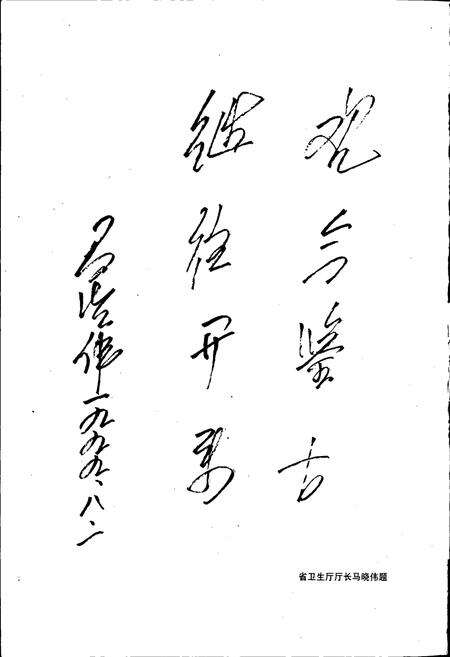 观今鉴古
继往开
马晓伟 一九九九、八、二
省卫生厅厅长马晓伟题